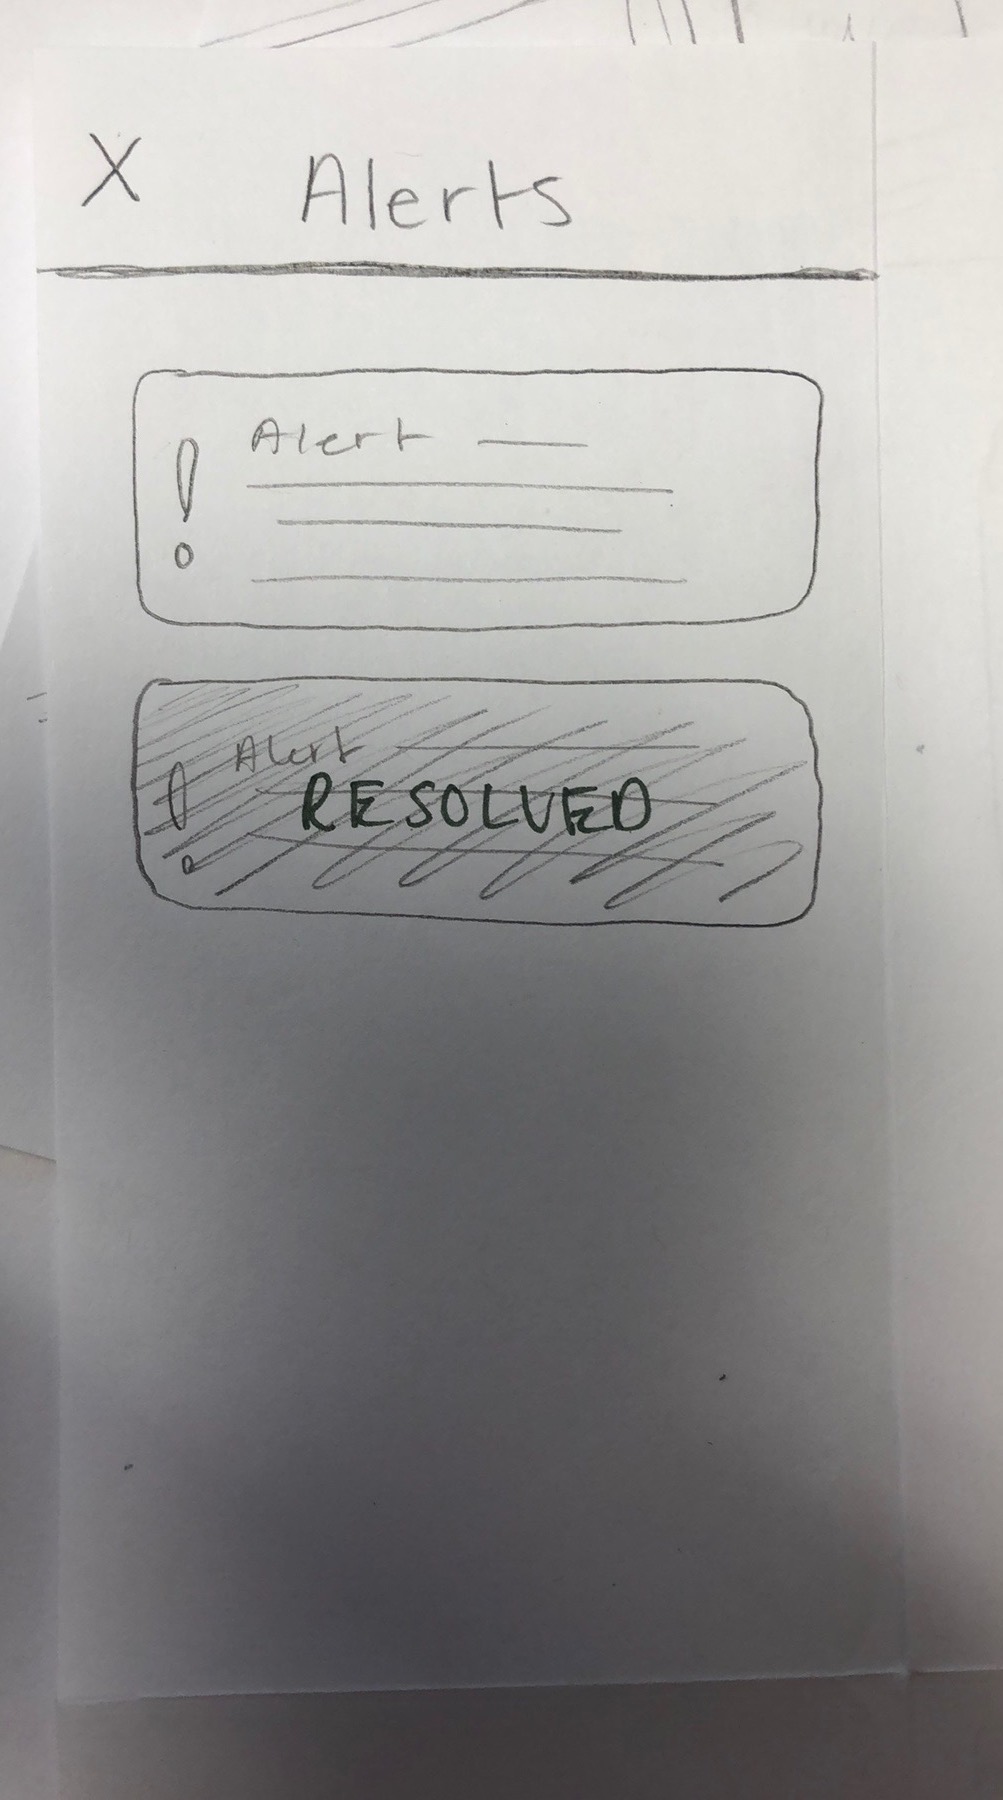 X Alerts
! Alert
! Alert
RESOLVED